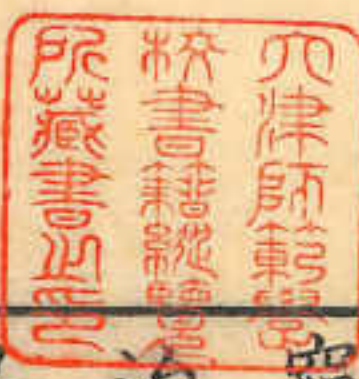 大津師範學
校書籍縱覽
所藏書之印